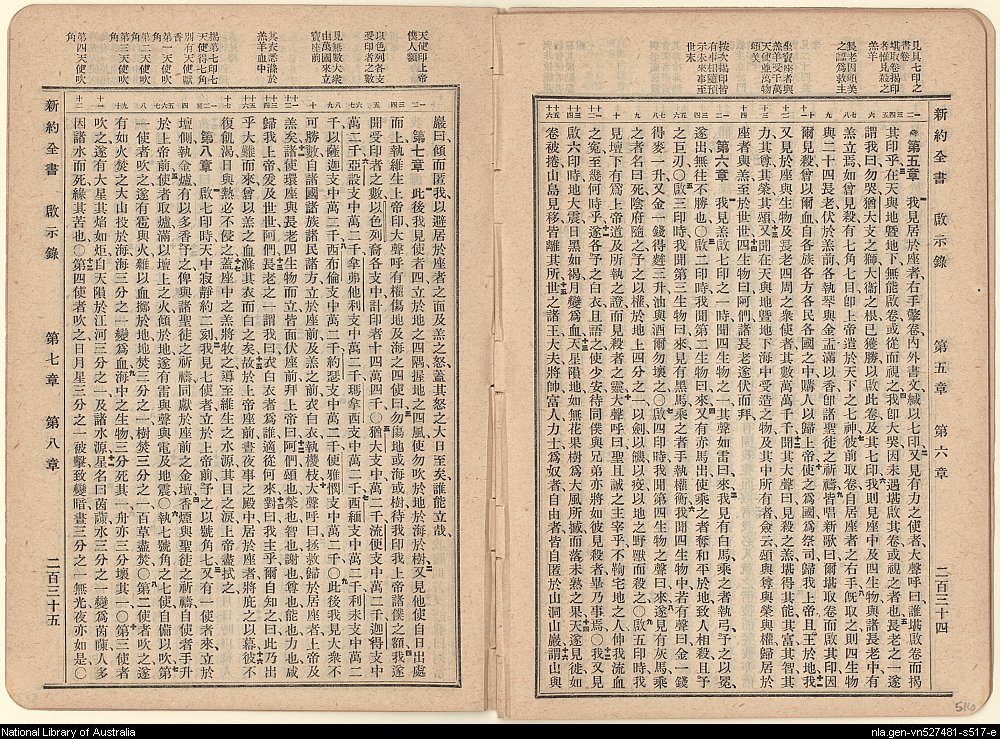 新約全書 啟示錄 第五章 第六章 二百三十四
見具七印之書卷
堪取卷揭印者惟見殺之羔羊
長老因頌美之認爲救主
坐寶座者與羔羊受千萬天使地萬物頌美
按次揭印自有事相隨預示未來事至世末
第五章 我見居於座者右手擎卷內外書文緘以七印又見有力之使者大聲呼曰誰堪啟卷而揭
其印乎在天與地曁地下無能啟卷或從而視之我卽大哭因未遇堪啟卷或視之者也長老之一遂
謂我曰勿哭猶大支之獅大衞之根已獲勝以啟此卷及其七印我則見座中及四生物與諸長老中有
羔立焉如曾見殺有七角七目卽上帝遣於天下之七神彼前取卷自居座者之右手旣取之則四生物
與二十四長老伏於羔前各執琴與金盂滿以香卽諸聖徒之祈禱皆唱新歌曰爾堪取卷而啟其印因
爾曾見殺以爾血自各族各方各民各國之中購人以歸上帝使之爲國爲祭司歸我上帝且王於地我
又見於座與生物及長老四周之衆使者其數萬萬千千聞其大聲曰見殺之羔堪得其能其富其智其
力其尊其榮其頌又聞在天與地曁地下海中受造之物及其中所有者僉云頌與尊與榮與權歸居於
座者與羔至於世世四生物曰阿們諸長老遂伏而拜
第六章 我見羔啟七印之一時聞四生物之一其聲如雷曰來我見有白馬乘之者執弓予之以冕
遂出無往不勝也○啟二印時我聞第二生物曰來又有赤馬出使乘之者奪和平於地致人相殺且予
之巨刃○啟三印時我聞第三生物曰來見有黑馬乘之者手執權衡我聞四生物中若有聲曰金一錢
得麥一升又金一錢得麰三升油與酒爾勿壞之○啟四印時我聞第四生物之聲曰來遂見有灰馬乘
之者名曰死陰府隨之予以權於地上四分之一以劍以饑以疫以地之野獸而殺人○啟五印時我
見壇下有爲上帝道及所執之證而見殺者之靈大聲呼曰聖且誠之主宰乎不鞫宅地之人伸我流血
之寃至幾何時乎遂各予之白衣且語之使少安待同僕與兄弟亦將如彼見殺者畢乃事焉○我又見
啟六印時地大震日黑如褐月變爲血天星隕地如無花果樹爲大風所撼而落未熟之果天遂見徙如
卷被捲山島見移皆離其所世之諸王大夫將帥富人力士爲奴者自由者皆自匿於山洞山巖謂山與
新約全書 啟示錄 第七章 第八章 二百三十五
天使印上帝僕人額
以色列各支受印者之數
見無數大衆由萬國來立寶座前
其衣蒸滌於羔羊血中
揭第七印七天使得七角
別有天使獻香
第一天使吹角
第二天使吹角
第三天使吹角
第四天使吹角
巖曰傾而匿我以避居於座者之面及羔之怒蓋其怒之大日至矣誰能立哉
第七章 此後我見使者四立於地之四隅握地之四風使勿吹於地於海於樹又見他使自日出處
而上執維生上帝印大聲呼有權傷地及海之四使曰勿傷地或海或樹待我印我上帝諸僕之額我遂
聞受印者之數以色列裔各支中計印者十四萬四千○猶大支中萬二千流便支中萬二千迦得支中
萬二千亞設支中萬二千拿弗他利支中萬二千瑪拿西支中萬二千西緬支中萬二千利未支中萬二
千以薩迦支中萬二千西布倫支中萬二千約瑟支中萬二千便雅憫支中萬二千○此後我見大衆不
可勝數自諸國諸族諸民諸方立於座前及羔之前衣白衣執椶枝大聲呼曰拯救歸於居座者上帝及
羔矣諸使環座與長老四生物而立皆面伏座前拜上帝曰阿們頌也榮也智也謝也尊也能也力也咸
歸我上帝爰及世世阿們長老之一謂我曰衣白衣者爲誰適從何來對曰我主乎爾自知之曰此乃出
乎大難而來曾以羔之血滌其衣而白之矣故於上帝座前晝夜事之於其殿中居於座者將庇之以幕彼不
復飢渴日與熱必不侵之蓋座中之羔將牧之導至維生之水源其目之淚上帝盡拭之
第八章 啟七印時天中寂靜約二刻我見七使者立於上帝前予之以號角七又有一使者來立於
壇側執金爐有以多香予之俾與諸聖徒之祈禱同獻於座前之金壇香烟與聖徒之祈禱自使者手升
於上帝前使者取爐滿以壇上之火傾於地遂有雷與聲與電及地震○執七號角之七使自備以吹第
一使者吹之遂有雹與火雜以血擲於地地焚三分之一樹焚三分之一百草盡焚○第二使者吹之遂
有如火焚之大山投於海海三分之一變爲血海中之生物三分死其一舟亦三分壞其一○第三使者
吹之遂有大星其焰如炬自天隕於江河三分之一及諸水源星名曰茵蔯水三分之一變爲茵蔯人多
因諸水而死緣其苦也○第四使者吹之日月星三分之一被擊致變暗晝三分之一無光夜亦如是○
516
National Library of Australia
nla.gen-vn527481-s517-e